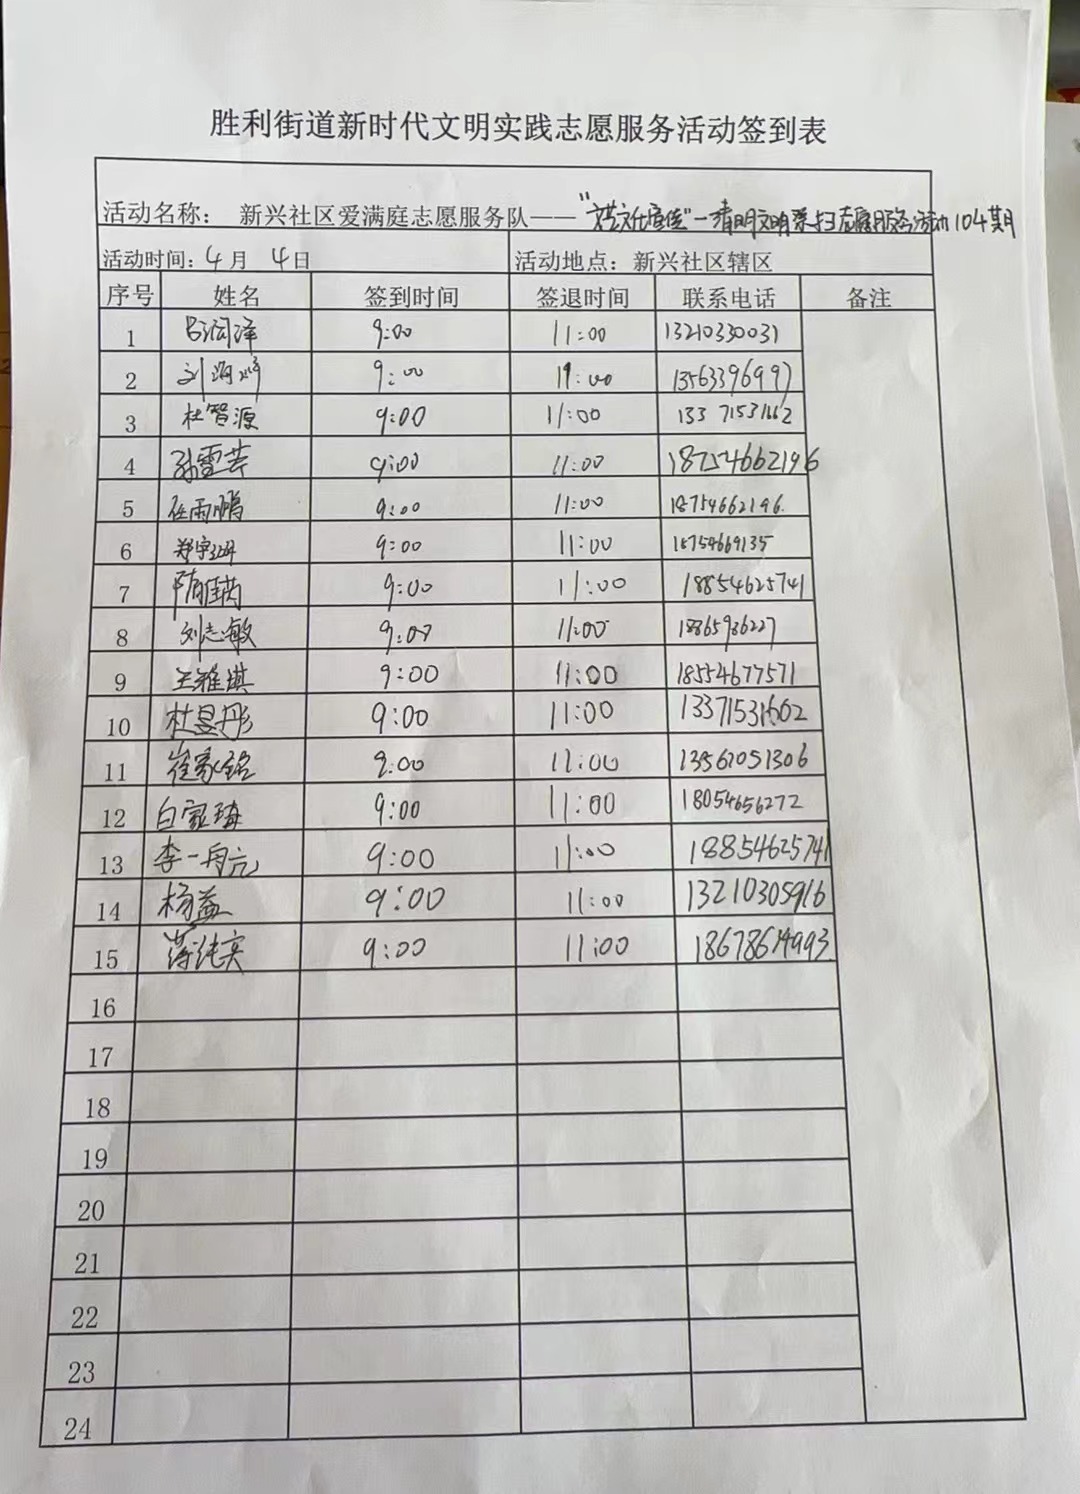 胜利街道新时代文明实践志愿服务活动签到表
活动名称： 新兴社区爱满庭志愿服务队——“文艺文化宣传”—清明文明祭扫志愿服务活动104期
活动时间：4月 4日 活动地点：新兴社区辖区
序号 姓名 签到时间 签退时间 联系电话 备注
1 吕润泽 9:00 11:00 13210330031
2 刘 9:00 11:00 13563396997
3 杜智源 9:00 11:00 133 71531662
4 孙雪芸 9:00 11:00 18754662196
5 任雨鹏 9:00 11:00 18754662196
6 郑宇 9:00 11:00 18754669135
7 隋佳芮 9:00 11:00 18854625741
8 刘志敏 9:00 11:00 18865986227
9 王雅琪 9:00 11:00 18554677571
10 杜昱彤 9:00 11:00 13371531602
11 崔家铭 9:00 11:00 13561051306
12 白家 9:00 11:00 18054656272
13 李一 9:00 11:00 18854625741
14 杨益 9:00 11:00 13210305916
15 蒋纯实 9:00 11:00 18678614993
16
17
18
19
20
21
22
23
24